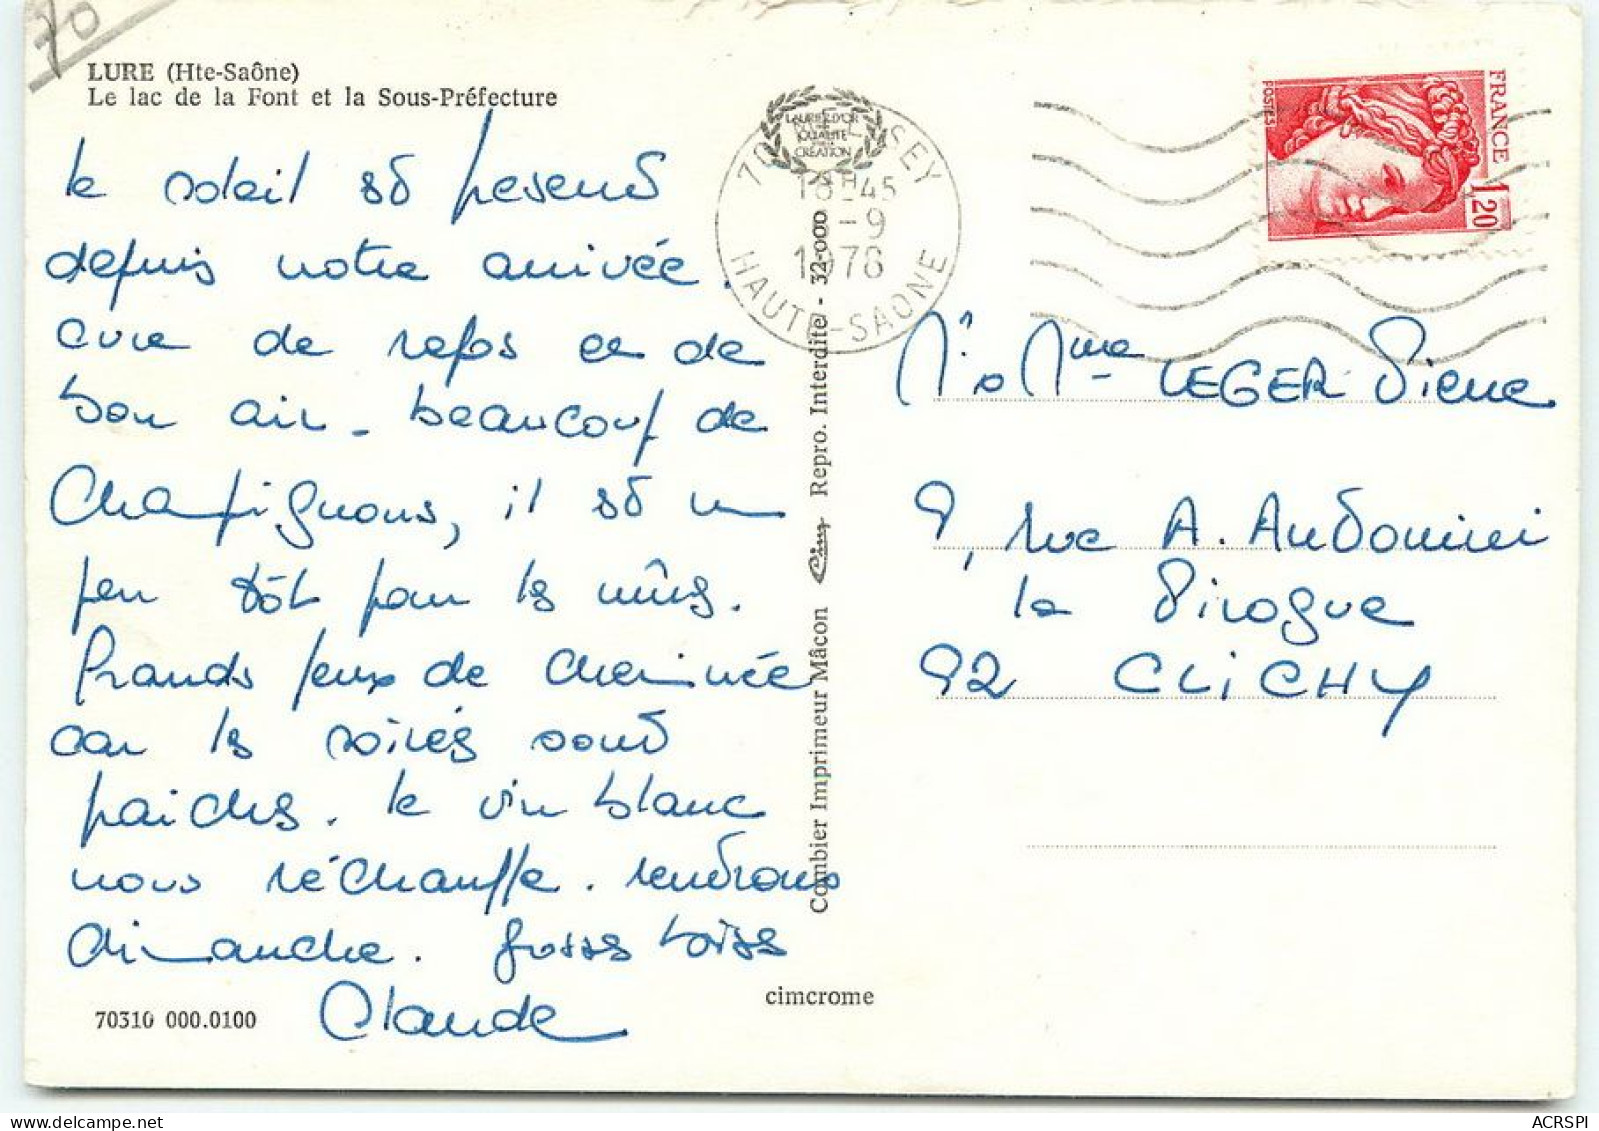 70
LURE (Hte-Saône)
Le lac de la Font et la Sous-Préfecture
le soleil est présent
depuis notre arrivée.
cure de repos et de
bon air - beaucoup de
champignons, il est un
peu tôt pour les mûres.
Grands feux de cheminée
car les soirées sont
fraîches. le vin blanc
nous réchauffe. rentrons
dimanche. grosses bises
Claude
70310 000.0100
cimcrome
Combier Imprimeur Mâcon Cim Repro. Interdite - 32-000
LAURIER D'OR
QUALITÉ
CRÉATION
SEY
18H45
-9
1978
HAUTE-SAONE
FRANCE
POSTES
1,20
Mr & Mme LEGER Pierre
9, rue A. Audonini
la Pirogue
92 CLICHY
www.delcampe.net
ACRSPI